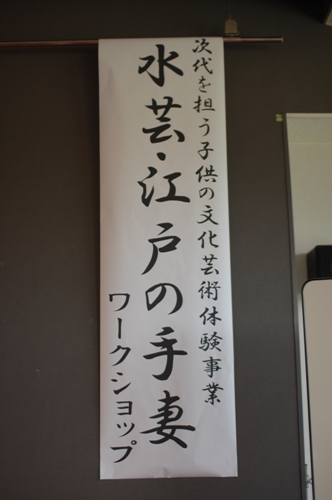 次代を担う子供の文化芸術体験事業
水芸・江戸の手妻
ワークショップ